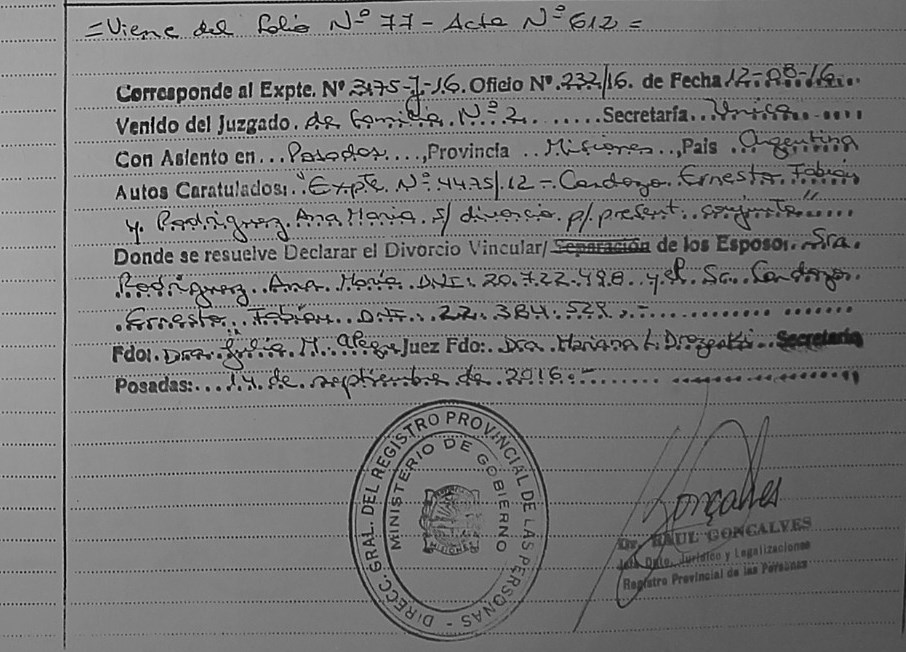 =Viene del folio Nº 77- Acta Nº 612=
Corresponde al Expte. Nº 3175-J-16. Oficio Nº. 232/16. de Fecha 12-08-16...
Venido del Juzgado. de Familia. Nº 2. ......Secretaría..Unica....
Con Asiento en...Posadas....,Provincia ..Misiones..,Pais .Argentina
Autos Caratulados: "Expte. Nº 4475/12 - Cardozo. Ernesto. Fabián
y. Rodríguez. Ana María. s/ divorcio p/present. conjunta".....
Donde se resuelve Declarar el Divorcio Vincular/ Separación de los Esposos. Sra.
Rodríguez.. Ana. María. DNI: 20.722.498.. y el. Sr. Cardozo.
Ernesto.. Fabián.. DNI.: 22.384.529.-
Fdo: Dra. Julia M. Juez Fdo: Dra. Mariana L. Secretaría
Posadas:...14.de septiembre de 2016.-
DIRECC. GRAL. DEL REGISTRO PROVINCIAL DE LAS PERSONAS -
MINISTERIO DE GOBIERNO
MISIONES
Gonçalves
Dr. RAUL GONCALVES
Jefe Dpto. Jurídico y Legalizaciones
Registro Provincial de las Personas